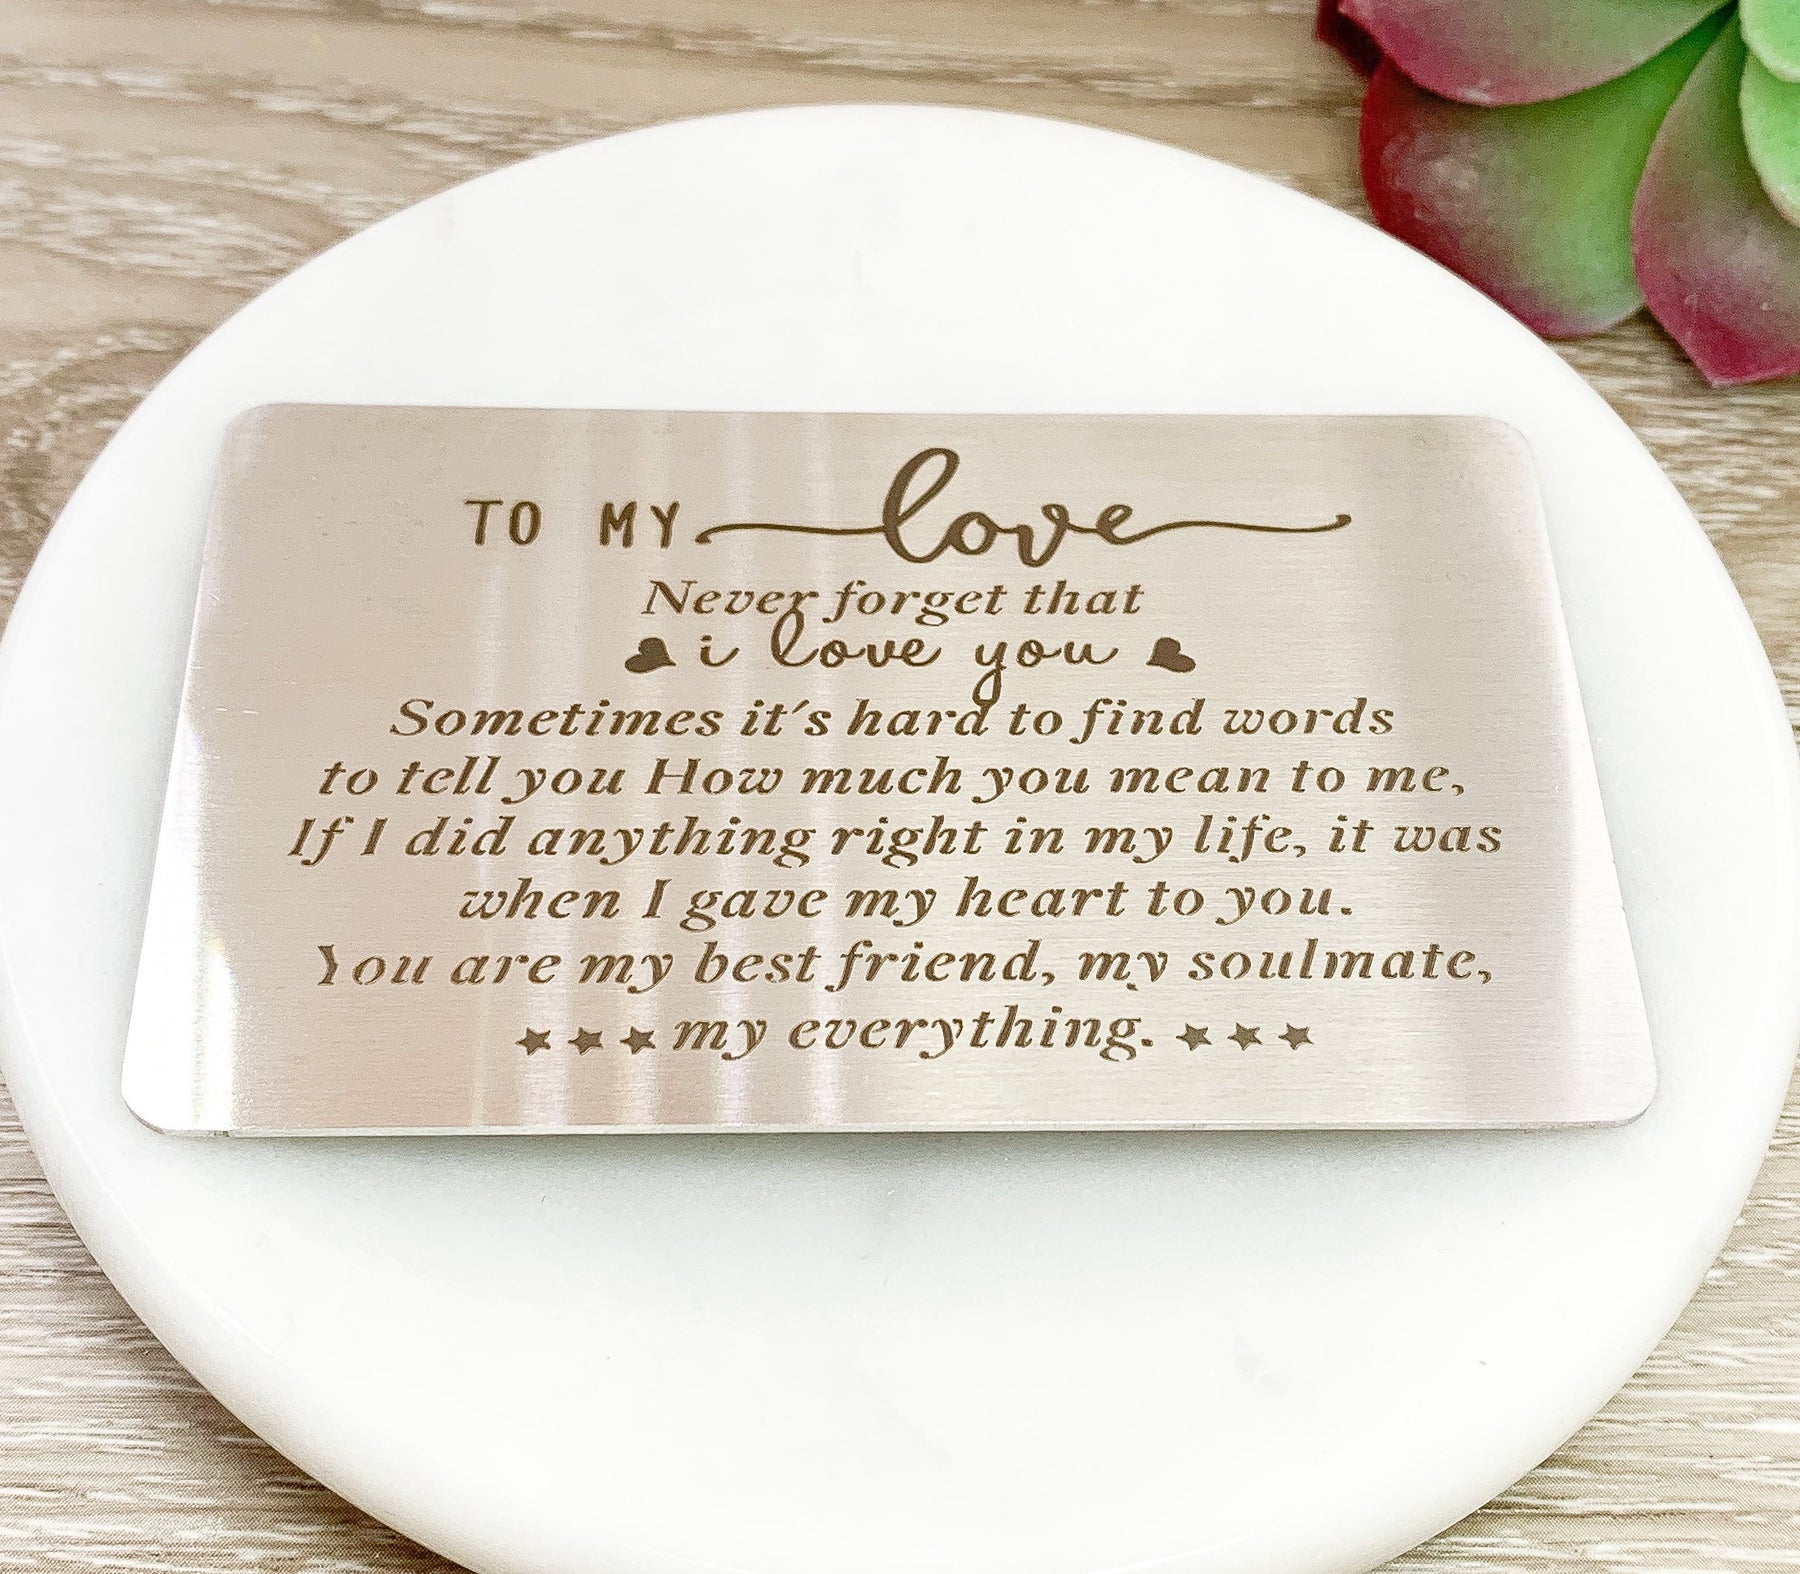 TO MY love
Never forget that
i love you
Sometimes it's hard to find words
to tell you How much you mean to me,
If I did anything right in my life, it was
when I gave my heart to you.
You are my best friend, my soulmate,
my everything.